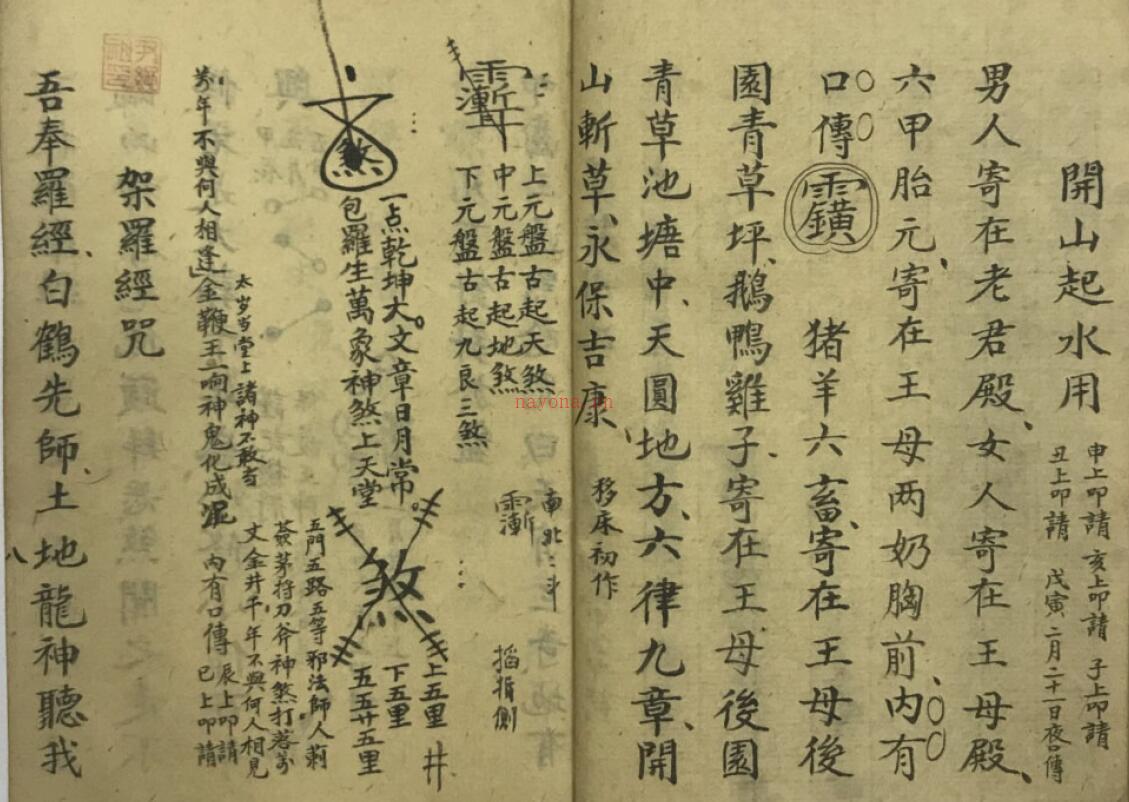 開山起水用
申上叩請 亥上叩請 子上叩請
丑上叩請 戊寅二月二十一日夜口傳
男人寄在老君殿、女人寄在王母殿、
六甲胎元、寄在王母两奶胸前、内有〇〇
〇〇口傳 猪羊六畜、寄在王母後
園青草坪、鵝鴨雞子、寄在王母後園
青草池塘中、天圓地方、六律九章、開
山斬草、永保吉康、
移床初作
上元盤古起天煞
中元盤古起地煞
下元盤古起九良三煞
掐指側
煞
一点乾坤大。文章日月常。
包羅生萬象神煞上天堂
煞
上五里
下五里
五五廿五里
井
五門五路五等邪法師人
文金井千年不與何人相見
太岁当堂上諸神不敢当
金鞭王二响神鬼化成泥
内有口傳 辰上叩請
巳上叩請
年不與何人相逢
架羅經咒
吾奉羅經、白鶴先師、土地龍神聽我
navona.cn